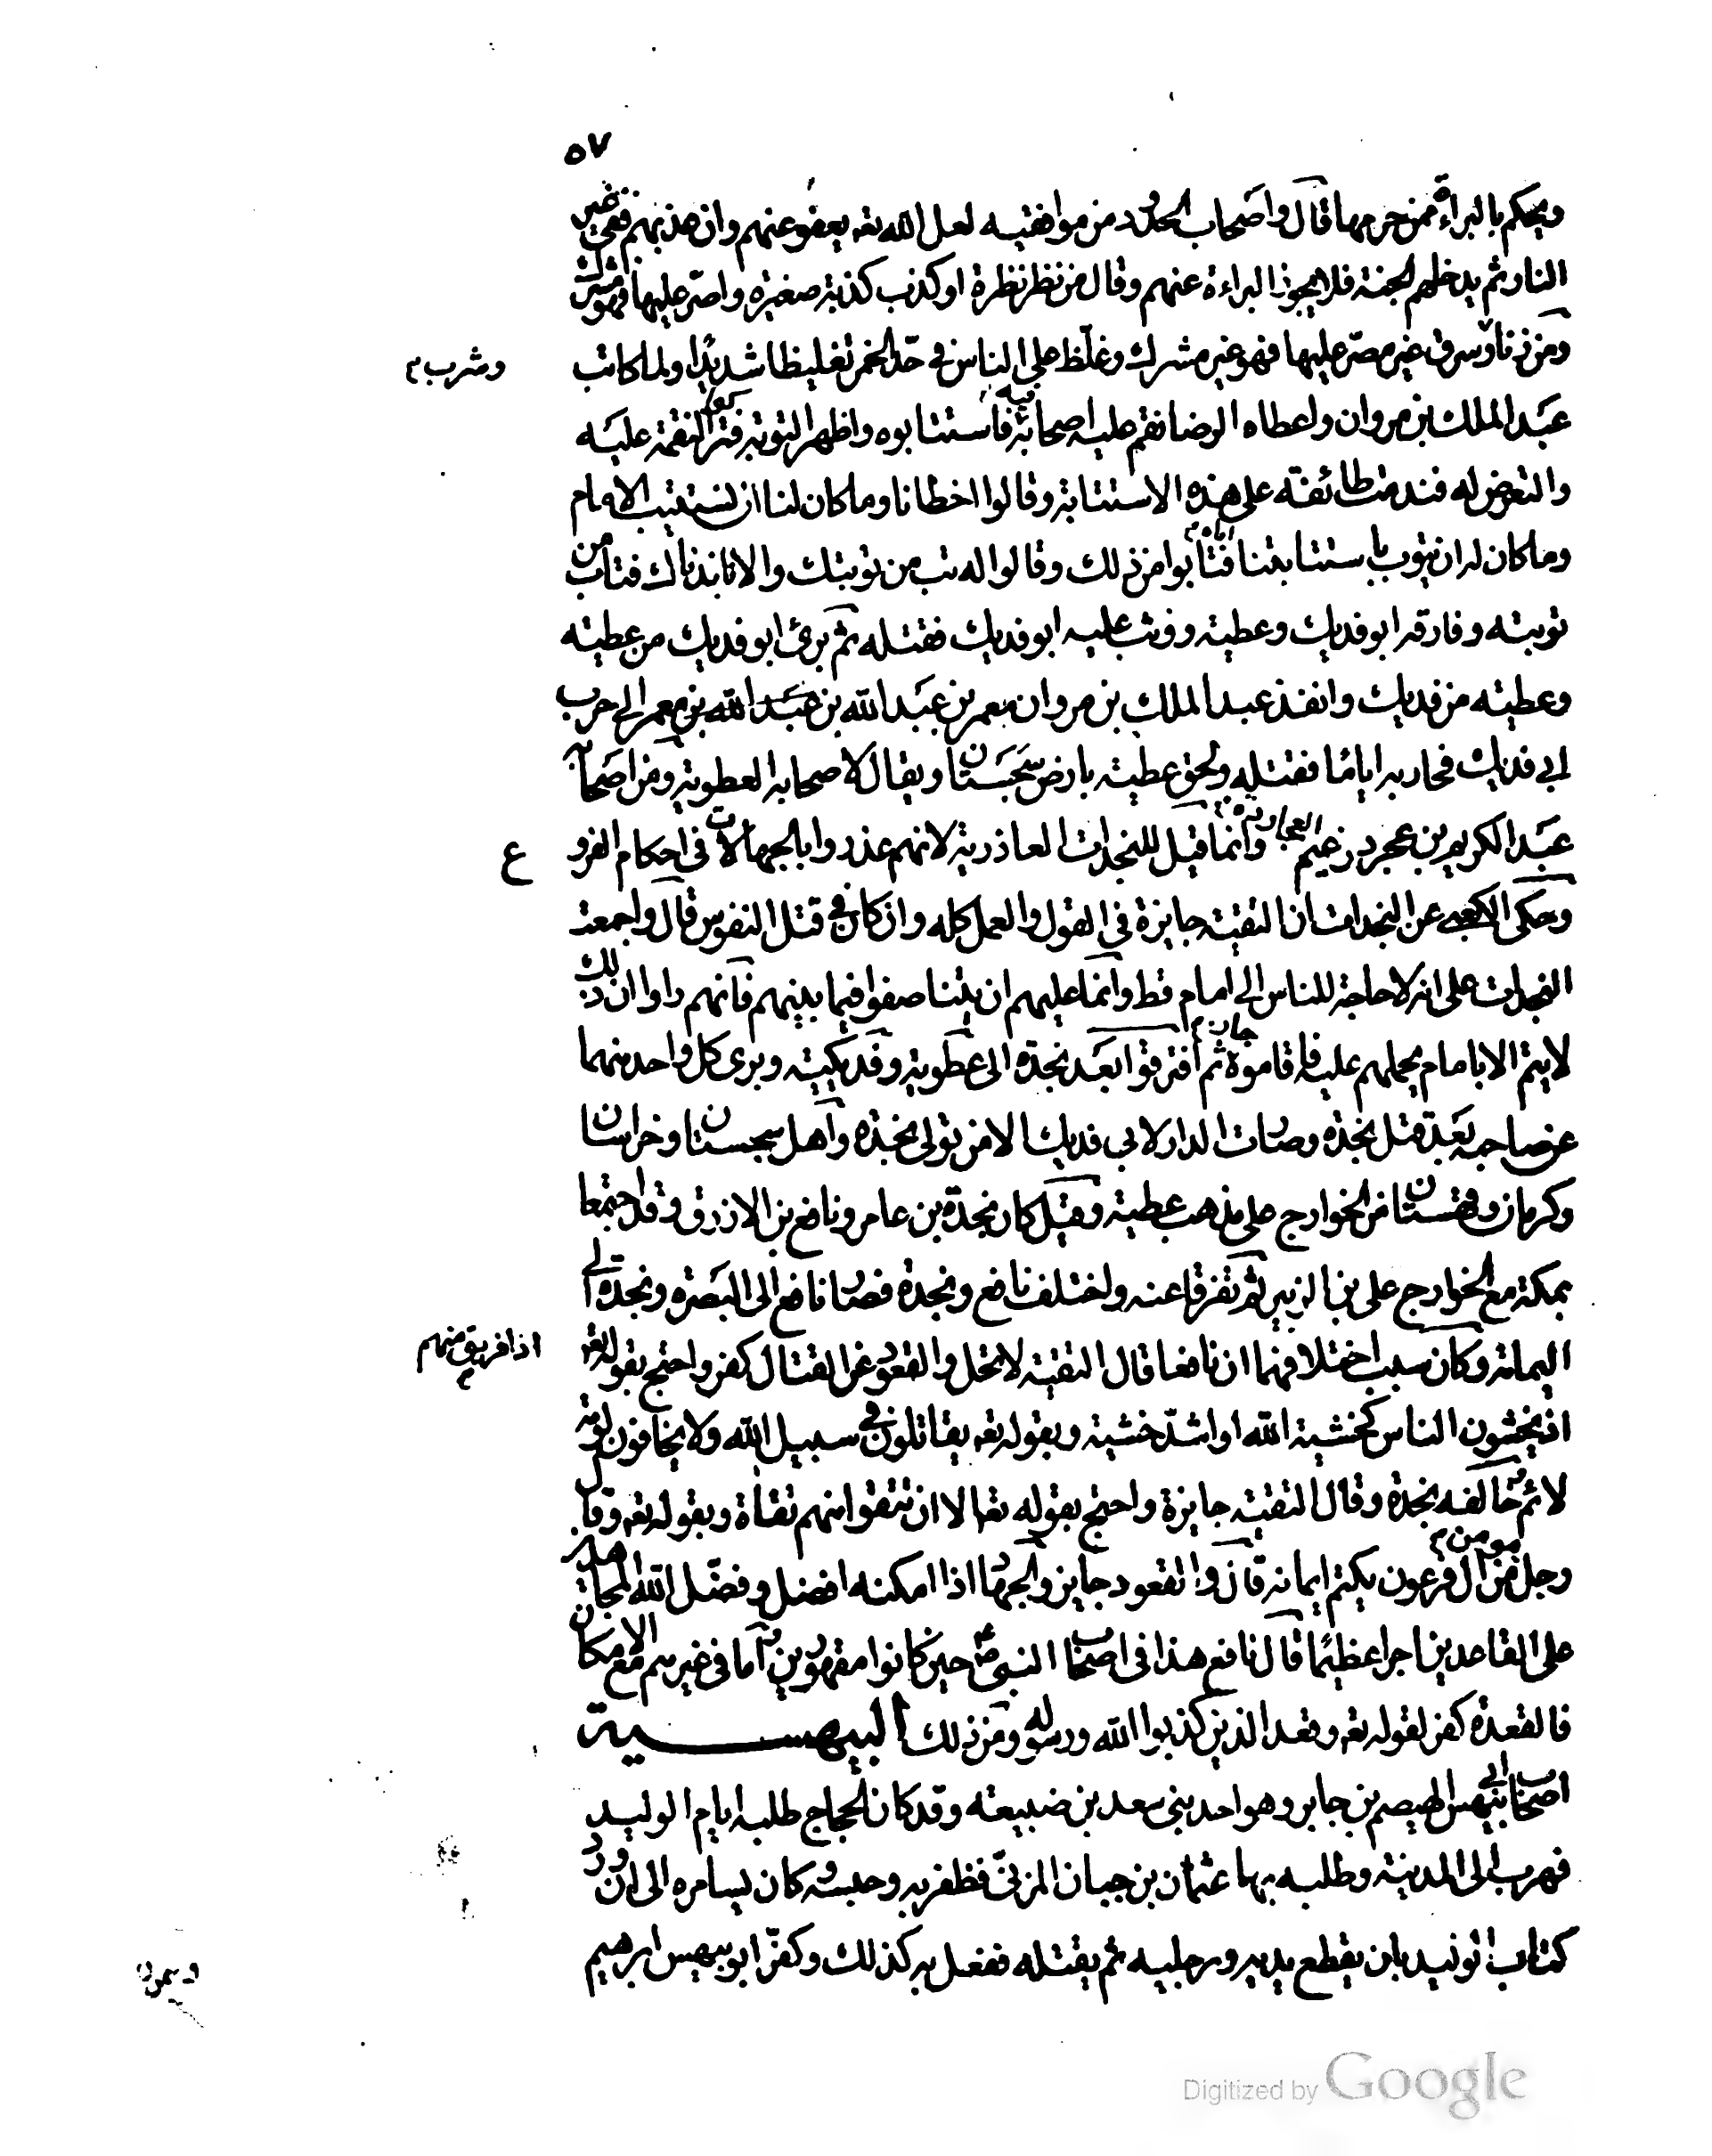 ٥٧
ويحكم بالبراءة ممن حرمها قال واصحاب الحدود من موافقيه لعل الله تعه يعفو عنهم وان عذبهم ففي غير
النار ثم يدخلهم الجنة فلا يجوز البراءة عنهم وقال من نظر نظرة او كذب كذبة صغيرة واصرّ عليها فهو مشرك
ومن زنا وسرق غير مصرّ عليها فهو غير مشرك وغلّظ على الناس في حدّ الخمر تغليظا شديدا ولما كاتب
وشرب م
عبد الملك بن مروان واعطاه الرضا نقم عليه اصحابه فيه فاستتابوه واظهر التوبة فتركوا النقمة عليه
والتعرض له فندمت طائفة على هذه الاستتابة وقالوا اخطانا وما كان لنا ان نستتيب الامام
وما كان له ان يتوب باستتابتنا اياه م فتابوا من ذلك وقالوا له تب من توبتك والا نابذناك فتاب من
توبته وفارقه ابو فديك وعطية ووثب عليه ابو فديك فقتله ثم برئ ابو فديك من عطية
وعطية من فديك وانفذ عبد الملك بن مروان معمر بن عبد الله بن عبد الله بن معمر الى حرب
ابي فديك فحاربه اياما فقتله ولحق عطية بارض سجستان ويقال لاصحابه العطوية ومن اصحابه
عبد الكريم بن عجرد زعيم العجاردة وانما قيل للنجدات العاذرية لانهم عذروا بالجهالات في احكام الفرو
ع
وحكى الكعبي عن النجدات ان التقية جايزة في القول والعمل كله وان كان في قتل النفوس قال واجمعت
النجدات على انه لا حاجة للناس الى امام قط وانما عليهم ان يتناصفوا فيما بينهم فانهم راوا ان ذلك
لا يتم الا بامام يحملهم عليه فاقاموه جاز م ثم افترقوا بعد نجدة الى عطوية وفديكية وبرى كل واحد منهما
عن صاحبه بعد قتل نجدة وصارت الدار لابي فديك الا من تولى نجدة واهل سجستان وخراسان
وكرمان وقهستان من الخوارج على مذهب عطية وقيل كان نجدة بن عامر ونافع بن الازرق قد اجتمعا
بمكة مع الخوارج على بن الزبير ثم تفرقا عنه واختلف نافع ونجدة فصار نافع الى البصرة ونجدة الى
اليمامة وكان سبب اختلافهما ان نافعا قال التقية لا تحل والقعود عن القتال كفر واحتج بقوله تعه
اذا فريق منهم م
اذ يخشون الناس كخشية الله او اشدّ خشية وبقوله تعه يقاتلون في سبيل الله ولا يخافون لومة
لائم خالفه نجدة وقال التقية جايزة واحتج بقوله تعا الا ان تتقوا منهم تقاة وبقوله تعه وقال
رجل مومن م من ال فرعون يكتم ايمانه قال والقعود جايز والجهاد اذا امكنه افضل وفضّل الله المجاهدين
على القاعدين اجرا عظيما قال نافع هذا في اصحاب النبي ص حين كانوا مقهورين اما في غيرهم مع الامكان
فالقعدة كفر لقوله تعه وقعد الذين كذبوا الله ورسوله ومن ذلك البيهسية
اصحاب ابي بيهس الهيصم بن جابر وهو احد بني سعد بن ضبيعة وقد كان الحجاج طلبه ايام الوليد
فهرب الى المدينة وطلبه بها عثمان بن حيان المزنيّ فظفر به وحبسه وكان يسامره الى ان ورد
كتاب الوليد بان يقطع يديه ورجليه ثم يقتله ففعل به كذلك وكفّر ابو بيهس ابرهيم
Digitized by Google